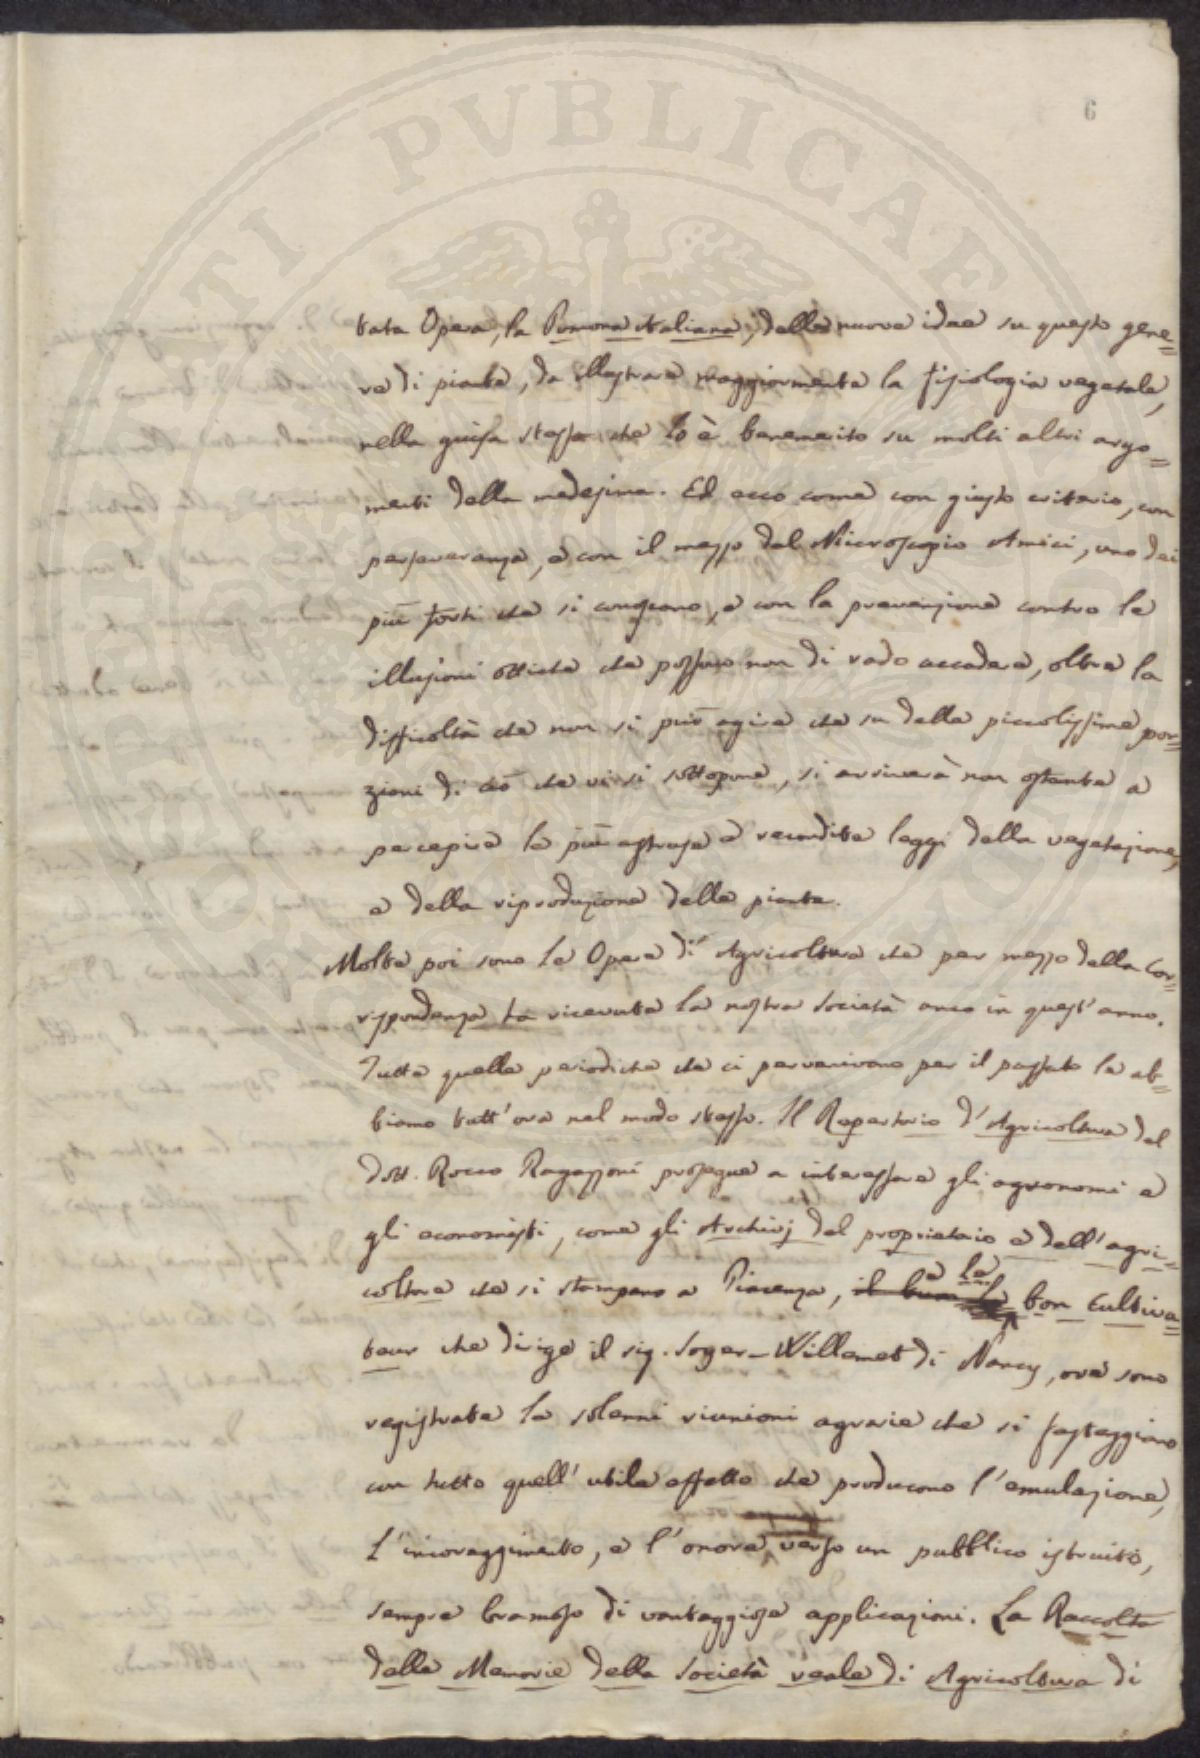 6
tata Opera, la Pomona italiana, delle nuove idee su questo gene=
re di piante, da illustrare maggiormente la fisiologia vegetale,
nella guisa stessa che lo è benemerito su molti altri argo=
menti della medesima. Ed ecco come con giusto criterio, con
perseveranza, e con il mezzo del Microscopio Amici, uno dei
più forti che si conoscono, e con la prevenzione contro le
illusioni ottiche che possono non di rado accadere, oltre la
difficoltà che non si può agire che su delle piccolissime por=
zioni di ciò che vi si sottopone, si arriverà non ostante a
percepire le più astruse e recondite leggi della vegetazione,
e della riproduzione delle piante.
Molte poi sono le Opere di Agricoltura che per mezzo della Cor=
rispondenza ha ricevute la nostra Società anco in quest'anno.
Tutte quelle periodiche che ci pervenivono per il passato le ab=
biamo tutt'ora nel modo stesso. Il Repertorio d'Agricoltura del
dott. Rocco Ragazzoni prosegue a interessare gli agronomi e
gli economisti, come gli Archivj del proprietario e dell'agri=
coltore che si stampano a Piacenza, e le bon cultiva=
teur che dirige il sig. Soyer-Willemet di Nancy, ove sono
registrate le solenni riunioni agrarie che si festeggiano
con tutto quell'utile effetto che producono l'emulazione,
l'incoraggimento, e l'onore, verso un pubblico istruito,
sempre bramoso di vantaggiose applicazioni. La Raccolta
delle Memorie della Società reale di Agricoltura di
PVBLICAE